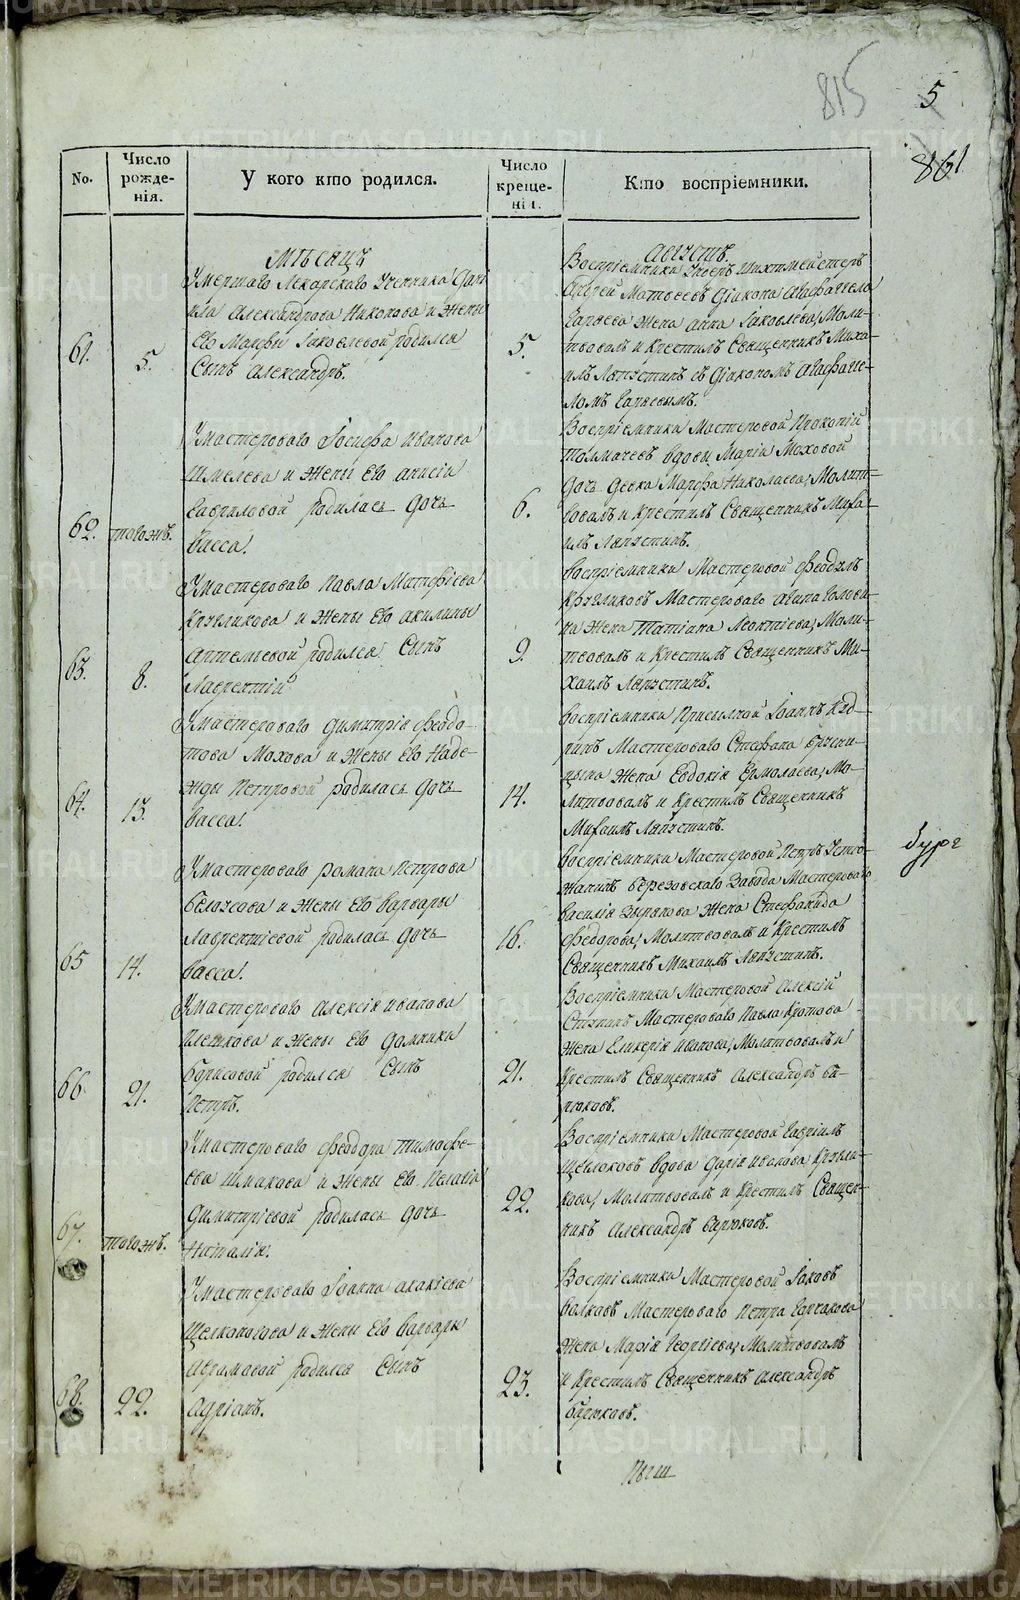 815
5
861
No.
Число рожде-нія.
У кого кто родился.
Число креще-нія.
Кто воспріемники.
Мѣсяцъ
Августъ.
61.
5.
Умершаго Лекарскаго Ученика Дани
ила Александрова Никонова и жены
Его Марфы Іаковлевой родился
Сынъ Александръ.
5.
Воспріемники Унтеръ Шихтмейстеръ
Андрей Матвеевъ Діакона Агафангела
Гаряева Жена Анна Іаковлева; Моли-
твовалъ и Крестилъ Священникъ Миха-
илъ Ляпустинъ съ Діакономъ Агафанге-
ломъ Гаряевымъ.
62.
тогожъ.
Умастероваго Іосифа Иванова
Шмелева и Жены Его Анисіи
Гавриловой родилась Дочь
Васса.
6.
Воспріемники Мастеровой Прокопій
Толмачевъ вдовы Маріи Моховой
Дочь Девка Марфа Николаева; Молит-
вовалъ и Крестилъ Священникъ Миха-
илъ Ляпустинъ.
63.
8.
Умастероваго Павла Матфіева
Кругликова и Жены Его Акилины
Артемьевой родился Сынъ
Лаврентій
9.
Воспріемники Мастеровой Феодулъ
Кругликовъ Мастероваго
на Жена Татіана Леонтіева; Моли-
твовалъ и Крестилъ Священникъ Ми-
хаилъ Ляпустинъ.
64.
13.
Умастероваго Димитрія Феодо-
това Мохова и Жены Его Наде-
жды Петровой родилась Дочь
Васса.
14.
Воспріемники Присыльной Іоаннъ Куд-
ринъ Мастероваго Стефана Брусни-
цына Жена Евдокія Ермолаева; Мо-
литвовалъ и Крестилъ Священникъ
Михаилъ Ляпустинъ.
65
14.
Умастероваго Романа Петрова
Белоусова и Жены Его Варвары
Лаврентіевой родилась Дочь
Васса.
16.
Воспріемники Мастеровой Петръ Устю-
жанинъ Березовскаго Завода Мастероваго
Василія Зырянова Жена Стефанида
Федорова; Молитвовалъ и Крестилъ
Священникъ Михаилъ Ляпустинъ.
66
21.
Умастероваго Алексія Иванова
Плешкова и жены Его Домники
Борисовой родился Сынъ
Петръ.
21.
Воспріемники Мастеровой Алексій
Ступинъ Мастероваго Павла Кротова
Жена Гликерія Иванова; Молитвовалъ и
Крестилъ Священникъ Александръ Би-
рюковъ.
67.
тогожъ.
Умастероваго Феодора Тимофе-
ева Шмакова и Жены Его Пелагіи
Димитріевой родилась Дочь
Наталія.
22.
Воспріемники Мастеровой Гавріилъ
Щелоковъ вдова Дарія Иванова Кругли-
кова; Молитвовалъ и Крестилъ Священ-
никъ Александръ Бирюковъ.
68.
22.
Умастероваго Іоанна Акакіева
Щелконогова и Жены Его Варвары
Абрамовой родился Сынъ
Адріанъ.
23.
Воспріемники Мастеровой Іаковъ
Волковъ Мастероваго Петра Горчакова
Жена Марія Георгіева; Молитвовалъ
и Крестилъ Священникъ Александръ
Бирюковъ.
METRIKI.GASO-URAL.RU